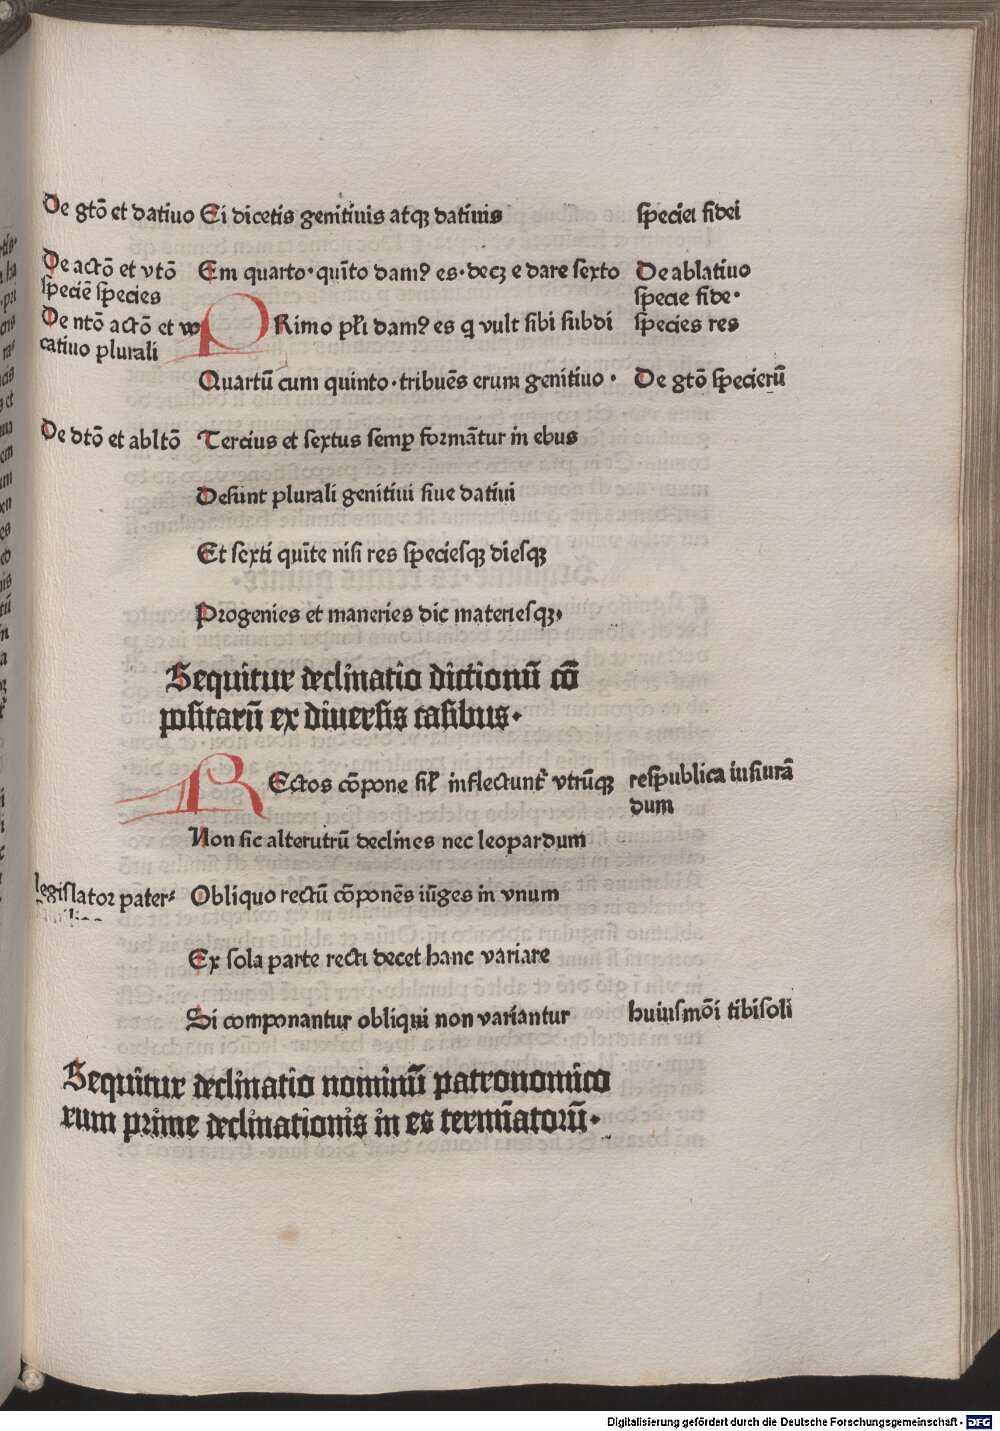 De gtō et datiuo Ei dicetis genitiuis atqꝫ datiuis speciei fidei
De actō et vtō Em quarto·quīto damꝰ es·decꝫ e dare sexto De ablatiuo
speciē species specie fide·
De ntō actō et vo PRimo pl̄i damꝰ es q vult sibi subdi species res
catiuo plurali
Quartū cum quinto·tribuēs erum genitiuo· De gtō specierū
De dtō et abltō Tercius et sextus semꝑ formātur in ebus
Desunt plurali genitiui siue datiui
Et sexti quīte nisi res speciesqꝫ diesqꝫ
Progenies et maneries dic materiesqꝫ·
Sequitur declinatio dictionū cō
positarū ex diuersis casibus·
REctos cōpone sil̄ inflectunt᷑ vtrūqꝫ respublica iusiurā
dum
Non sic alterutrū declines nec leopardum
legislatoꝛ pater⸗ Obliquo rectū cōponēs iūges in vnum
Ex sola parte recti decet hanc variare
Si componantur obliqui non variantur huiusmōi tibisoli
Sequitur declinatio nominū patronomico
rum prime declinationis in es termīatoꝛū·
Digitalisierung gefördert durch die Deutsche Forschungsgemeinschaft - DFG